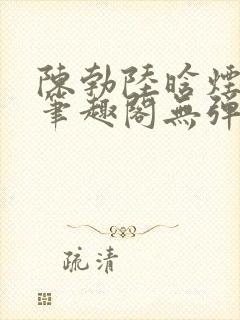 陳勃陸晗煙
筆趣閣無彈
疏清